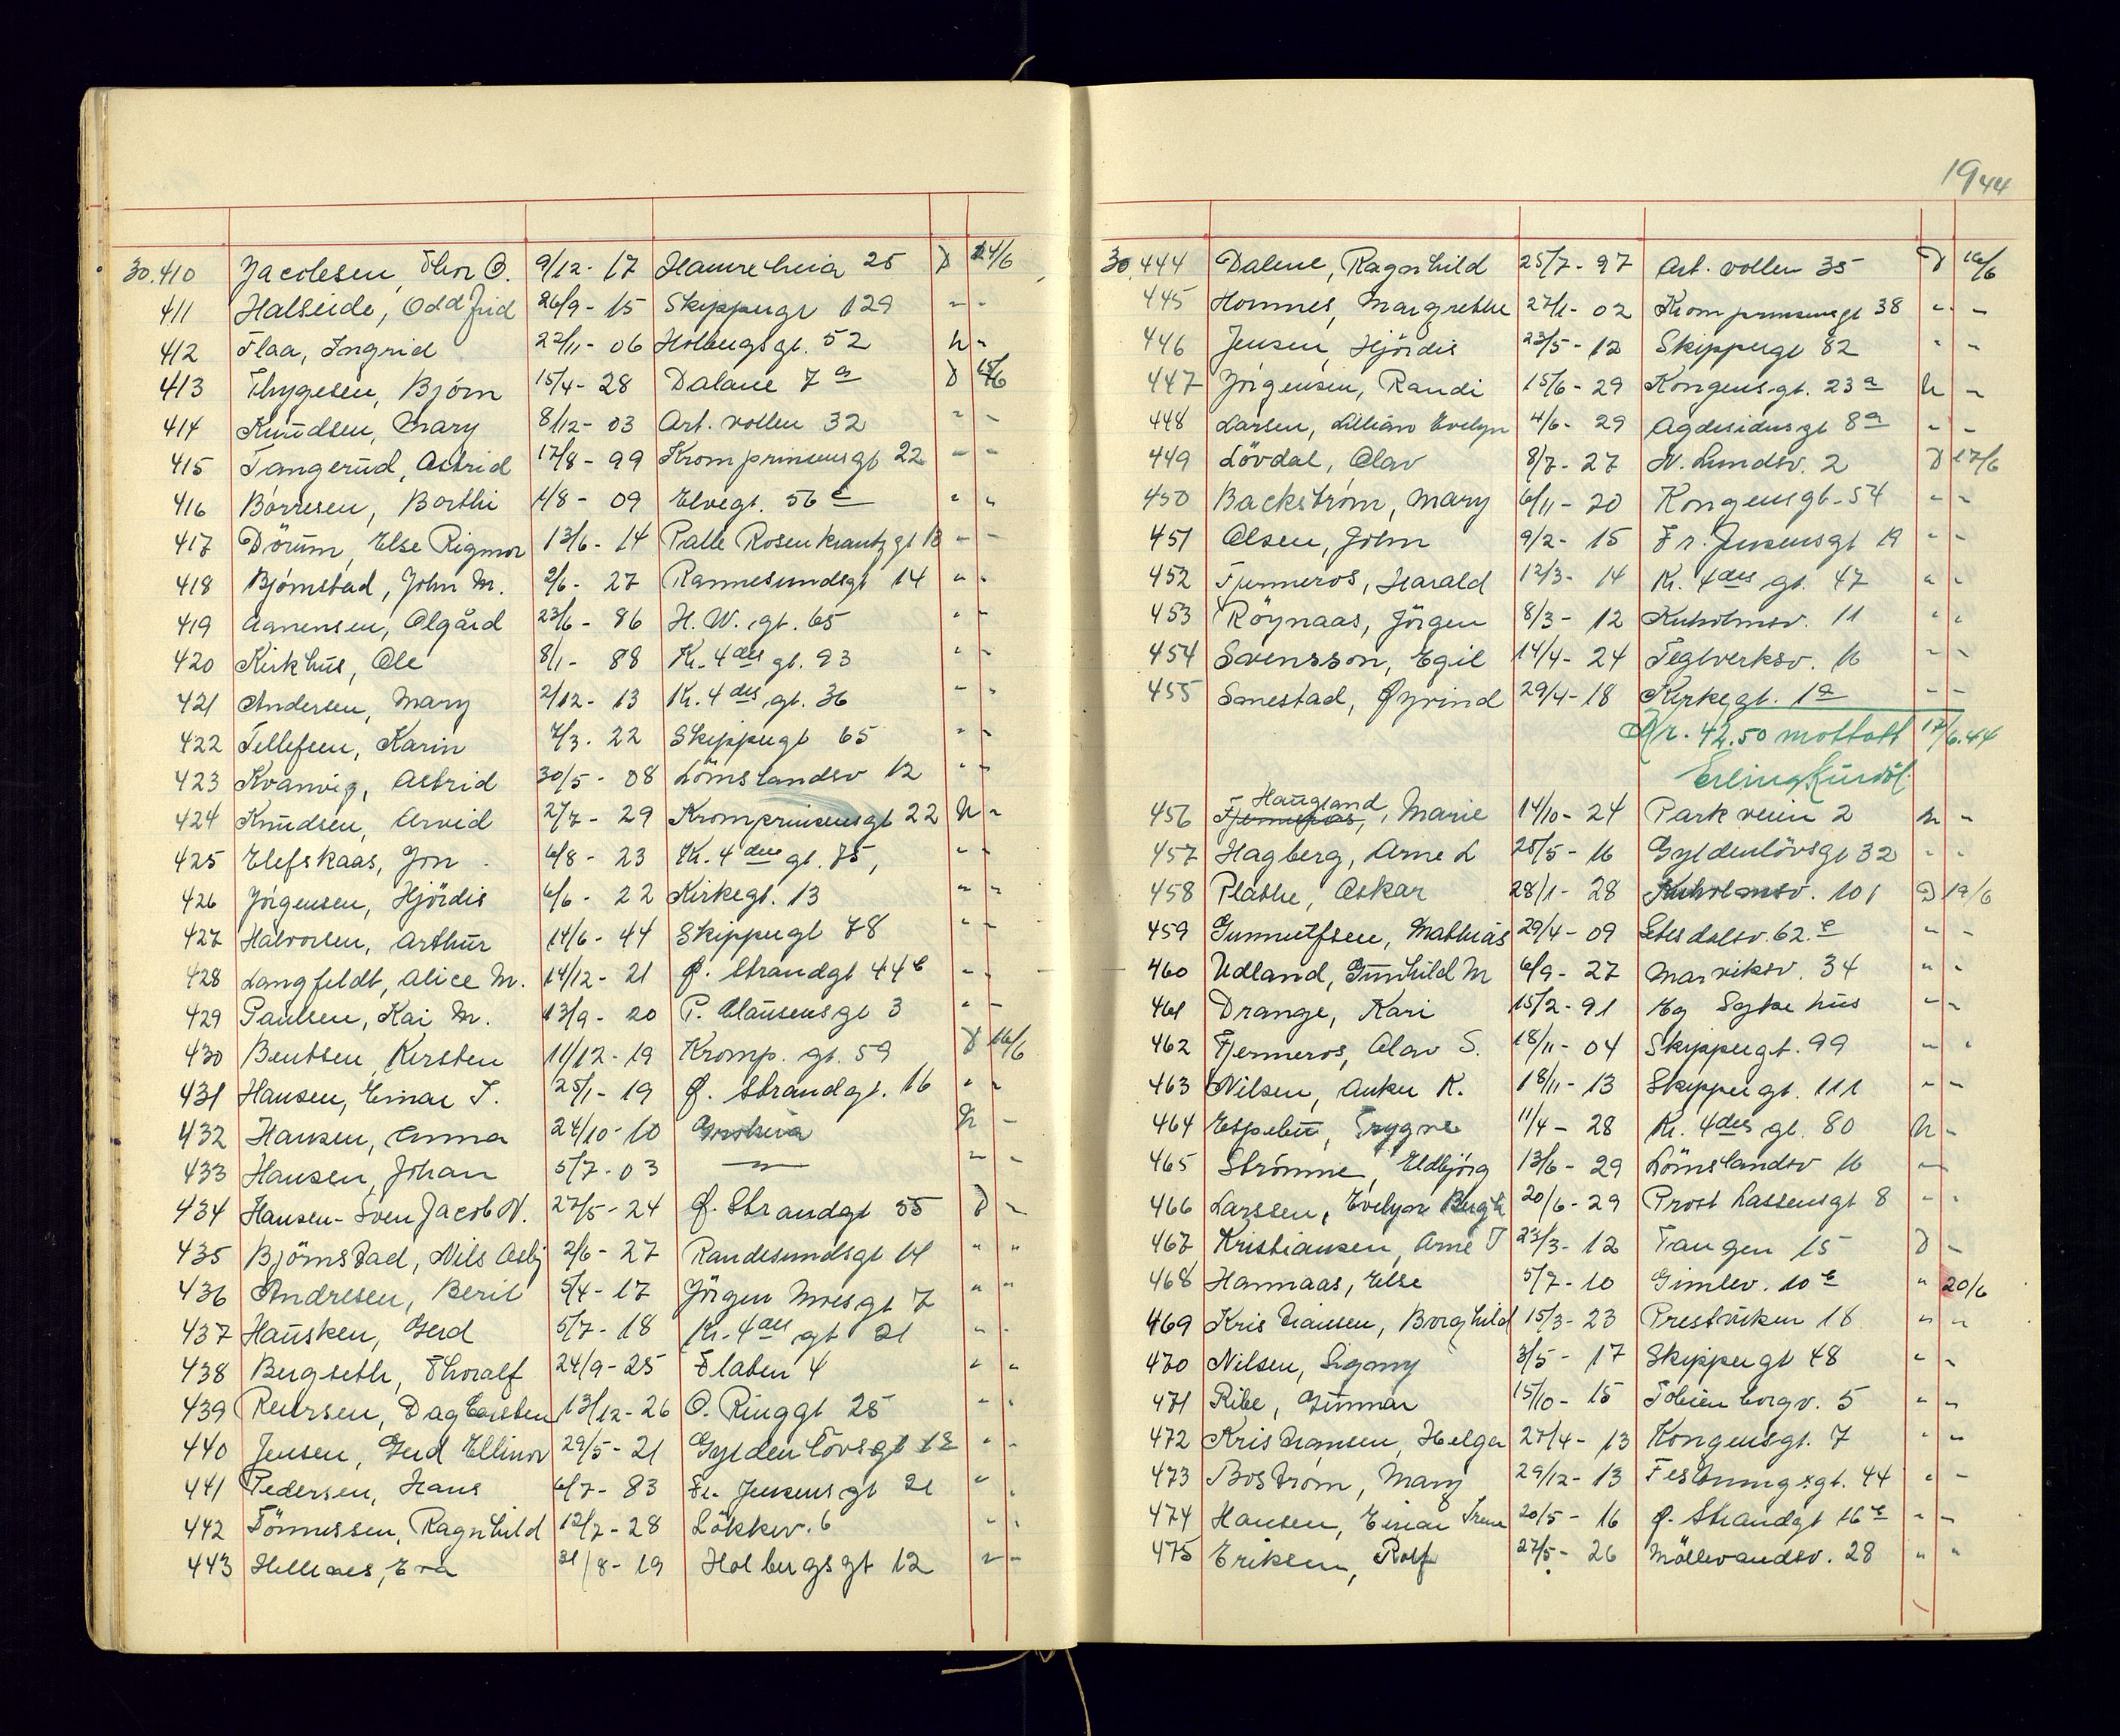 30.410 Jacobsen, Thor O. 9/12 - 17 Hamreheia 25 D 14/6
411 Halseide, Odd Frid 26/9 - 15 Skippergt 129 " "
412 Flaa, Ingrid 22/11 - 06 Holbergsgt. 52 N "
413 Thygesen, Bjørn 15/4 - 28 Dalane 7a D 15/6
414 Knudsen, Mary 8/12 - 03 Art. vollen 32 " "
415 Tangerud, Astrid 17/8 - 99 Kronprinsensgt 22 " "
416 Børresen, Borthi 1/8 - 09 Elvegt. 56c " "
417 Dörum, Else Rigmor 13/6 - 14 Palle Rosenkrantzgt 13 " "
418 Bjørnstad, John M. 2/6 - 27 Rannesundsgt 14 " "
419 Aanensen, Olgård 23/6 - 86 H. W. gt. 65 " "
420 Kirkhus, Ole 8/1 - 88 Kr. 4des gt. 93 " "
421 Andersen, Mary 2/12 - 13 Kr. 4des gt. 36 " "
422 Tellefsen, Karin 7/3 - 22 Skippergt 65 " "
423 Kvanvig, Astrid 30/5 - 08 Lömslandsv 12 " "
424 Knudsen, Arvid 27/7 - 29 Kronprinsensgt 22 N "
425 Elefskaas, Jon 6/8 - 23 Kr. 4des gt. 75, " "
426 Jörgensen, Hjördis 6/6 - 22 Kirkegt. 13 " "
427 Halvorsen, Arthur 14/6 - 44 Skippergt 78 " "
428 Langfeldt, Alice M. 14/12 - 21 Ø. Strandgt 44c " "
429 Paulsen, Kai M. 13/9 - 20 P. Clausensgt 3 " "
430 Bentsen, Kirsten 11/12 - 19 Kronp. gt. 59 D 16/6
431 Hansen, Einar I. 25/1 - 19 Ø. Strandgt. 16 " "
432 Hansen, Anna 24/10 - 10 N "
433 Hansen, Johan 5/7 - 03 " " "
434 Hansen - Sven Jacob N. 27/5 - 24 Ø. Strandgt 55 D "
435 Björnstad, Nils Asbj 2/6 - 27 Randesundsgt 14 " "
436 Andresen, Berit 5/4 - 17 Jörgen Moesgt 7 " "
437 Hausken, Gerd 5/7 - 18 Kr. 4des gt 21 " "
438 Bergseth, Thoralf 24/9 - 25 Flaten 4 " "
439 Reiersen, Dag Carsten 13/12 - 26 O. Ringgt 25 " "
440 Jensen, Gerd Ellinor 29/5 - 21 Gyldenlövsgt 12 " "
441 Pedersen, Hans 6/7 - 83 Fr. Jensensgt 21 " "
442 Tönnessen, Ragnhild 12/7 - 28 Lökkev. 6 " "
443 Hellraes, Eva 31/8 - 19 Holbergsgt 12 " "
1944
30.444 Dalene, Ragnhild 25/7 - 97 Art. vollen 35 D 16/6
445 Hommes, Margrethe 27/1 - 02 Kronprinsensgt 38 " "
446 Jensen, Hjördis 23/5 - 12 Skippergt 82 " "
447 Jörgensen, Randi 15/6 - 29 Kongensgt. 23a N "
448 Larsen, Lillian Evelyn 4/6 - 29 Agdesidensgt 8a " "
449 Lövdal, Olav 8/7 - 27 N. Lundsv. 2 D 17/6
450 Backstrøm, Mary 6/11 - 20 Kongensgt. 54 " "
451 Olsen, John 9/2 - 15 Fr. Jensensgt 19 " "
452 Fjermeros, Harald 12/3 - 14 Kr. 4des gt. 47 " "
453 Röynaas, Jörgen 8/3 - 12 Kuholmsv. 11 " "
454 Svensson, Egil 14/4 - 24 Teglverksv. 16 " "
455 Smestad, Øyvind 29/4 - 18 Kirkegt. 1a " "
Kr. 42.50 mottatt 17/6.44
Erling
456 Fjermeros, Haugland, Marie 14/10 - 24 Parkveien 2 N "
457 Hagberg, Arne L 25/5 - 16 Gyldenlövsgt 32 " "
458 Plathe, Oskar 28/1 - 28 Kuholmsv. 101 D 19/6
459 Gunnulfsen, Mathias 29/4 - 09 Setesdalsv. 62c " "
460 Udland, Gunhild M 6/9 - 27 Marviksv. 34 " "
461 Drange, Kari 15/2 - 91 Eg Sykehus " "
462 Fjermeros, Olav S. 18/11 - 04 Skippergt. 99 " "
463 Nilsen, Anker K. 18/11 - 13 Skippergt. 111 " "
464 Espeli, Trygve 11/4 - 28 Kr. 4des gt. 80 N "
465 Strömme, Eldbjörg 13/6 - 29 Lömslandsv 16 "
466 Larssen, Evelyn Birgit 20/6 - 29 Prost Lassensgt 8 " "
467 Kristiansen, Arne I 23/3 - 12 Tangen 15 D "
468 Hannaas, Else 5/7 - 10 Gimlev. 10c " 20/6
469 Kristiansen, Borghild 15/3 - 23 Prestviken 18 " "
470 Nilsen, Signy 3/5 - 17 Skippergt 48 " "
471 Ribe, Gunnar 15/10 - 15 Tobienborgv. 5 " "
472 Kristiansen, Helga 27/4 - 13 Kongensgt. 7 " "
473 Bostrøm, Mary 29/12 - 13 Festningsgt. 44 " "
474 Hansen, Einar Irene 20/5 - 16 Ø. Strandgt 16c " "
475 Eriksen, Rolf 27/5 - 26 Möllevandsv. 28 " "